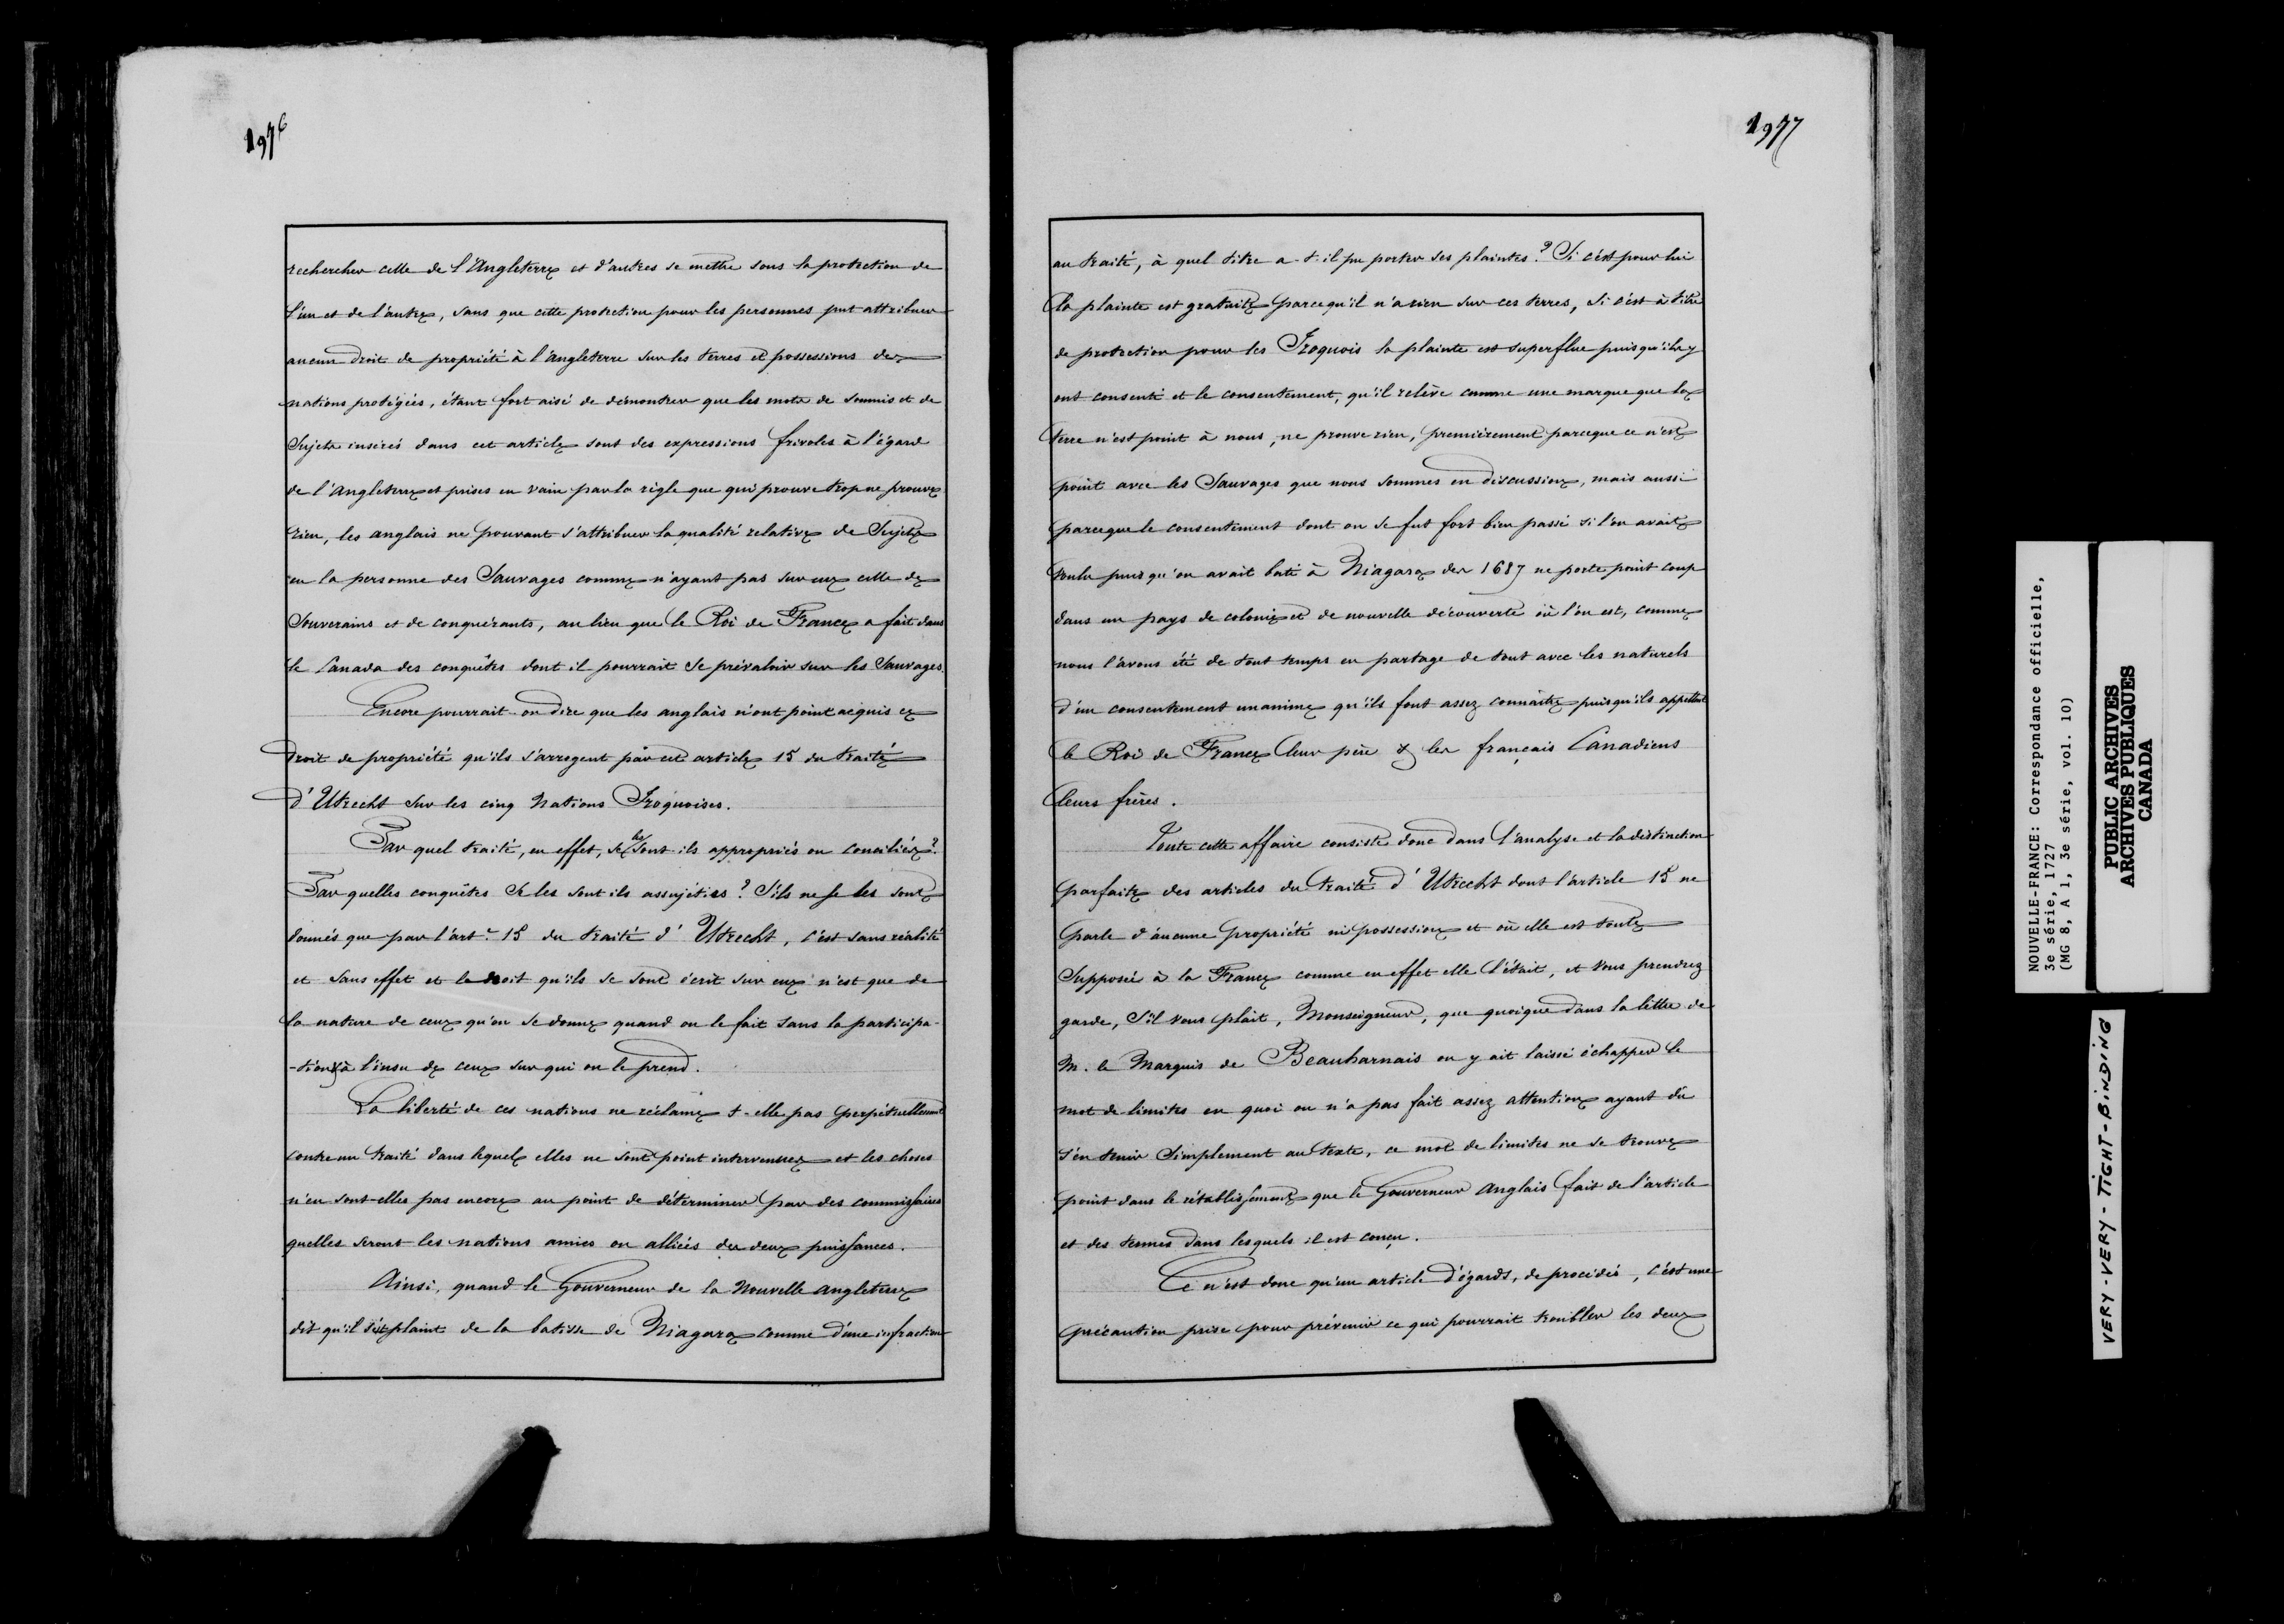 1976
rechercher celle de l'Angleterre et d'autres se mettre sous la protection de
l'un et de l'autre, sans que cette protection pour les personnes put attribuer
aucun droit de propriété à l'angleterre sur les terres et possessions des
nations protégées, étant fort aisé de démontrer que les mots de soumis et de
Sujets insérés dans cet article sont des expressions frivoles à l'égard
de l'angleterre et prises en vain par la règle que qui prouve trop ne prouve
rien, les anglais ne pouvant s'attribuer la qualité relative de Sujets
en la personne des Sauvages comme n'ayant pas sur eux celle de
Souverains et de conquérants, au lieu que le Roi de France a fait dans
le Canada des conquêtes dont il pourrait se prévaloir sur les Sauvages.
Encore pourrait-on dire que les anglais n'ont point acquis ce
droit de propriété qu'ils s'arrogent par cet article 15 du traité
d'Utrecht sur les cinq Nations Iroquoises.
Par quel traité, en effet, se les sont-ils appropriés ou conciliés?
Par quelles conquêtes se les sont ils assujéties? S'ils ne se les sont
donnés que par l'art.e 15 du traité d'Utrecht, c'est sans réalité
et sans effet et le droit qu'ils se sont écrit sur eux n'est que de
la nature de ceux qu'on se donne quand on le fait sans la participa-
-tion & à l'insu de ceux sur qui on le prend.
La liberté de ces nations ne réclame t-elle pas perpétuellement
contre un traité dans lequel elles ne sont point intervenues et les choses
n'en sont-elles pas encore au point de déterminer par des commissaires
quelles seront les nations amies ou alliées des deux puissances.
Ainsi, quand le Gouverneur de la Nouvelle angleterre
dit qu'il s'est plaint de la batisse de Niagara comme d'une infraction
1977
au traité, à quel titre a-t-il pu porter ses plaintes? Si c'est pour lui
la plainte est gratuite parcequ'il n'a rien sur ces terres, si c'est à titre
de protection pour les Iroquois la plainte est superflue puisqu'ils y
ont consenti et le consentement, qu'il relève comme une marque que la
terre n'est point à nous, ne prouve rien, premièrement parceque ce n'est
point avec les Sauvages que nous sommes en discussion, mais aussi
parceque le consentement dont on se fut fort bien passé si l'on avait
voulu puis qu'on avait bati à Niagara des 1687 ne porte point coup
dans un pays de colonie et de nouvelle découverte où l'on est, comme
nous l'avons été de tout temps en partage de tout avec les naturels
d'un consentement unanime qu'ils font assez connaitre puisqu'ils appellent
le Roi de France leur père & les français Canadiens
leurs frères.
Toute cette affaire consiste donc dans l'analyse et la distinction
parfaite des articles du traité d'Utrecht dont l'article 15 ne
parle d'aucune propriété ni possession et où elle est toute
Supposée à la France comme en effet elle l'était, et vous prendrez
garde, s'il vous plait, Monseigneur, que quoique dans la lettre de
M. le Marquis de Beauharnais on y ait laissé échapper le
mot de limites en quoi on n'a pas fait assez attention ayant dû
s'en tenir simplement au texte, ce mot de limites ne se trouve
point dans le rétablissement que le Gouverneur anglais fait de l'article
et des termes dans lesquels il est conçu.
Ce n'est donc qu'un article d'égards, de procédés, c'est une
précaution prise pour prévenir ce qui pourrait troubler les deux
NOUVELLE-FRANCE: Correspondance officielle,
3e série, 1727
(MG 8, A 1, 3e série, vol. 10)
PUBLIC ARCHIVES
ARCHIVES PUBLIQUES
CANADA
VERY-VERY-TIGHT-BINDING